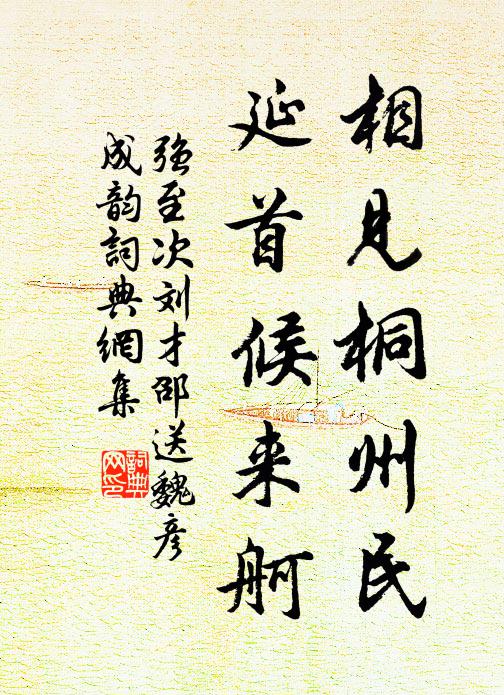 相见桐州民
延首候来舸
强至次刘才邵送魏彦
成韵詞典網集
詞典网印